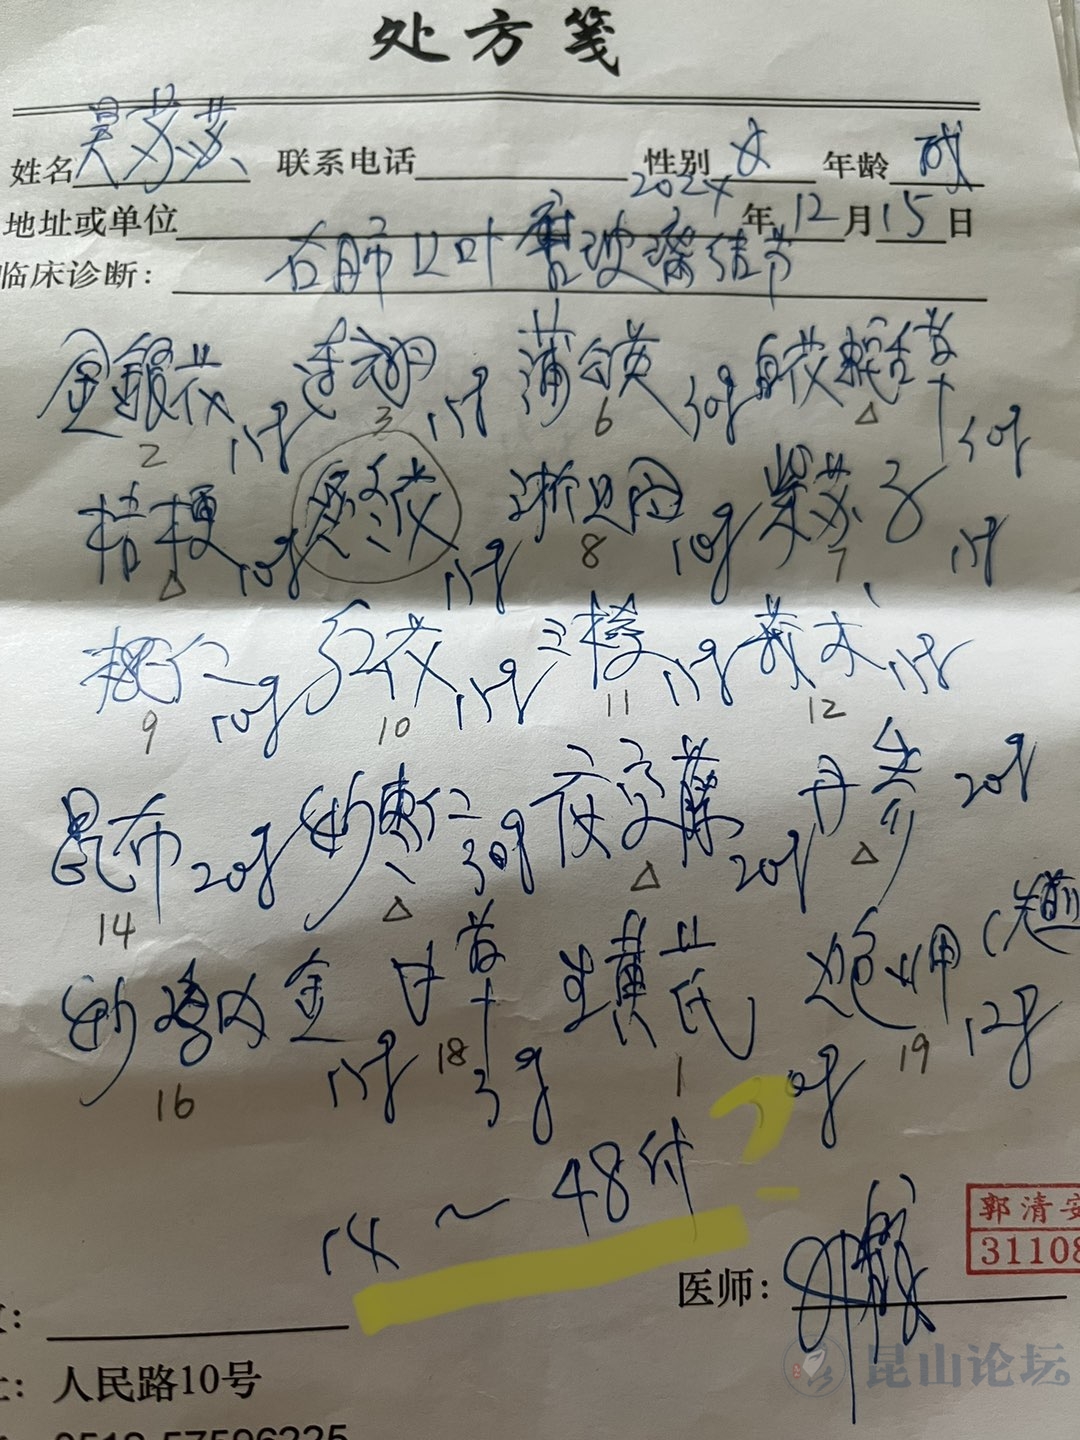 处方笺
姓名 吴苏苏 联系电话 性别 女 年龄 成
地址或单位 2024年12月15日
临床诊断: 右肺上叶磨玻璃结节
金银花 15g 连翘 15g 蒲公英 30g 白花蛇舌草 30g
2 3 6 △
桔梗 10g 冬花 15g 浙贝母 10g 紫苏子 15g
△ 8 7
桃仁 10g 红花 15g 三棱 15g 莪术 15g
9 10 11 12
昆布 20g 炒枣仁 30g 夜交藤 20g 丹参 20g
14 △ △ △
炒鸡内金 15g 甘草 3g 生黄芪 30g 炮山甲 12g (先煎
16 18 1 19
14~48付?
郭清安
31108
医师:
人民路10号
0512-57596225
昆山论坛